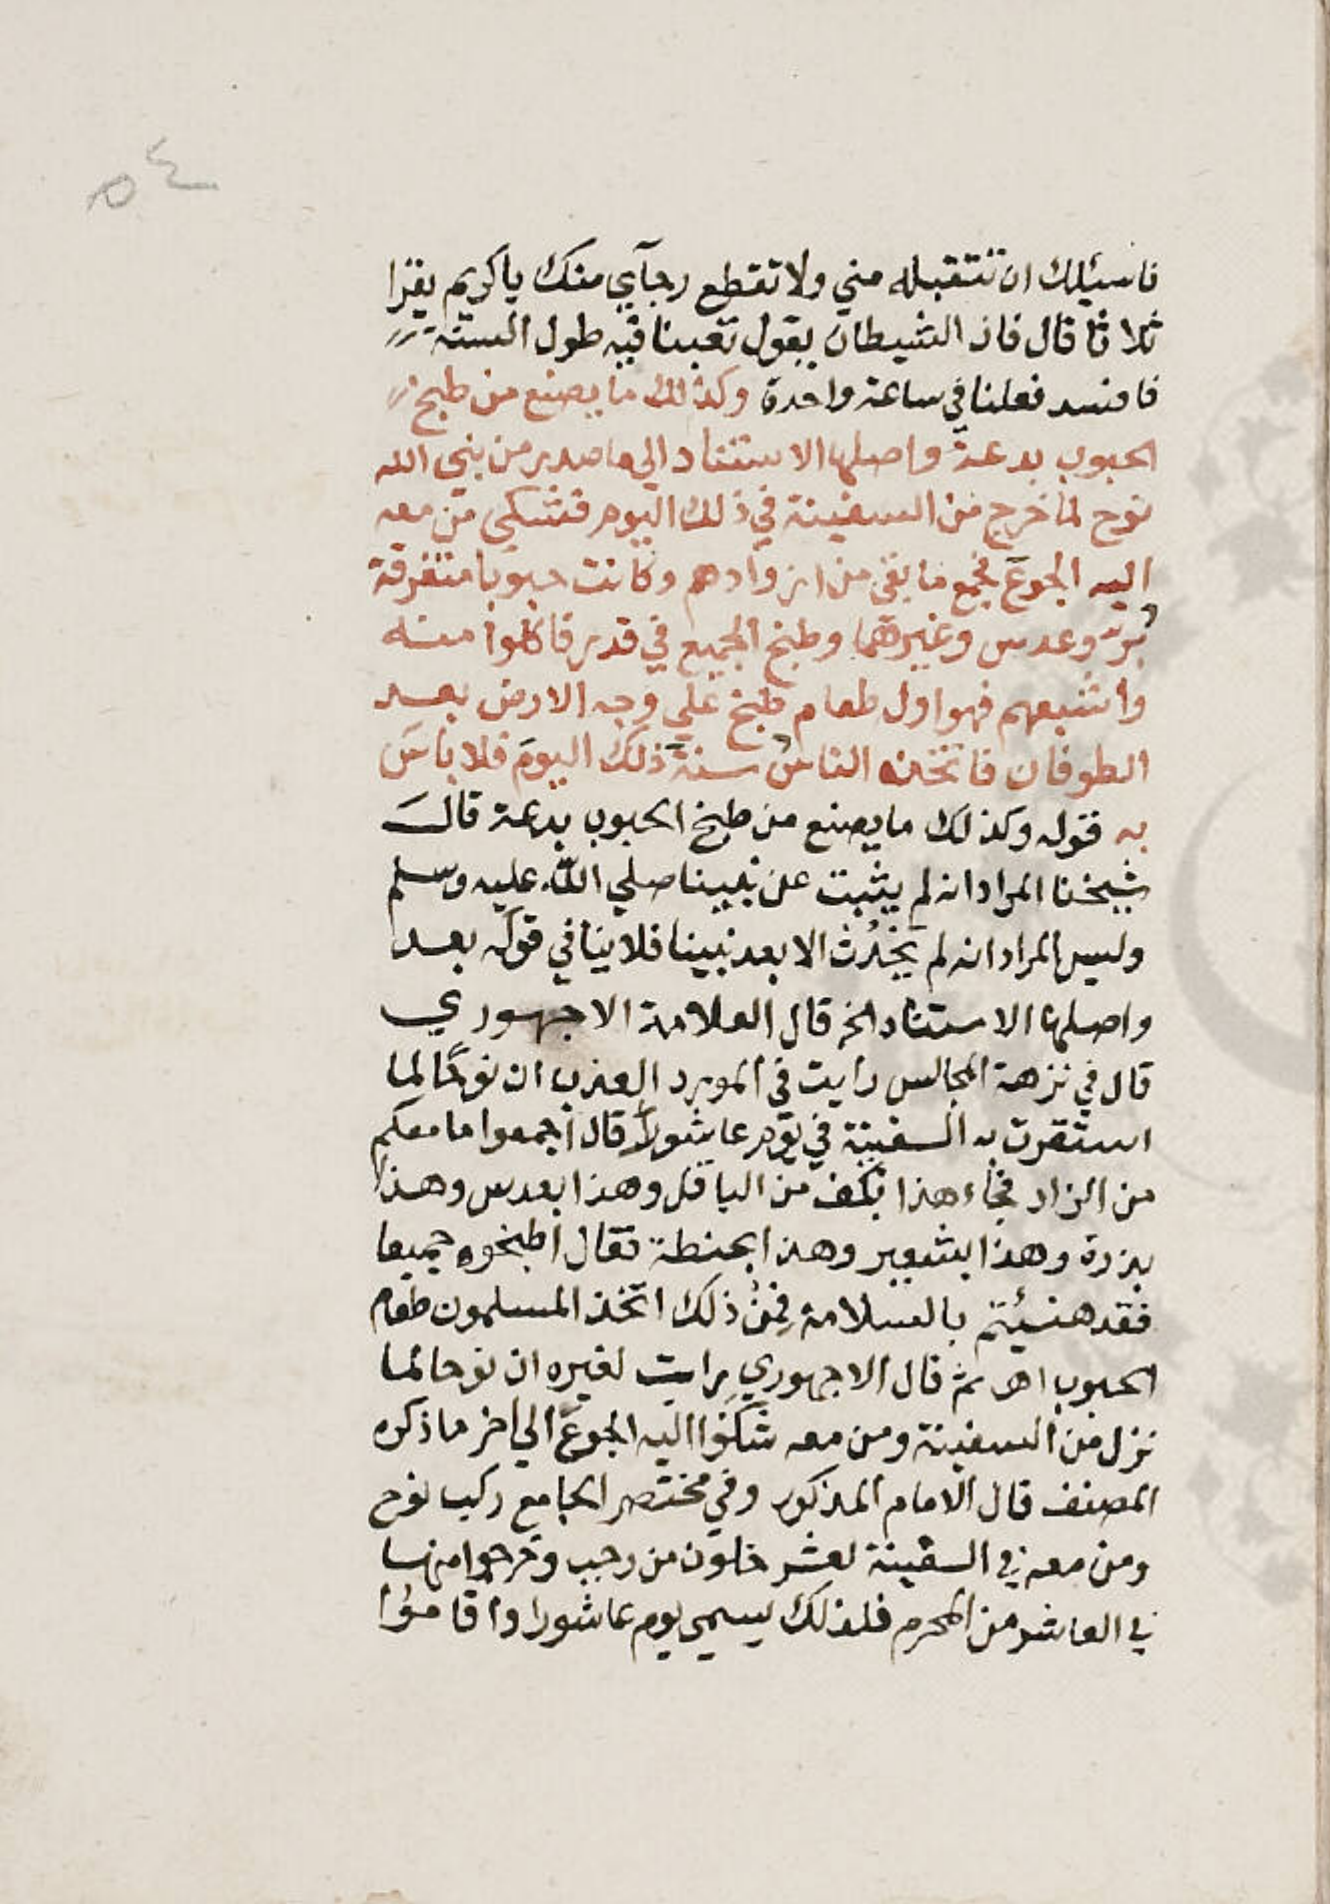 ٥٤
فاسئلك ان تتقبله مني ولا تقطع رجآي منك ياكريم يقرا
ثلاثا قال فان الشيطان يقول تعبنا فيه طول السنة
فافسد فعلنا في ساعة واحدة وكذلك ما يصنع من طبخ
الحبوب بدعة واصلها الاستناد الي ما صدر من نبي الله
نوح لما خرج من السفينة في ذلك اليوم فشكى من معه
اليه الجوع فجمع ما بقي من ازوادهم وكانت حبوبا متفرقة
برّ وعدس وغيرهما وطبخ الجميع في قدر فاكلوا منه
واشبعهم فهو اول طعام طبخ علي وجه الارض بعد
الطوفان فاتخذه الناس سنة ذلك اليوم فلا باس
به قوله وكذلك ما يصنع من طبخ الحبوب بدعة قال
شيخنا المراد انه لم يثبت عن نبينا صلي الله عليه وسلم
وليس المراد انه لم يَحْدُث الا بعد نبينا فلا ينافي قوله بعد
واصلها الاستناد الخ قال العلامة الاجهوري
قال في نزهة المجالس رايت في المورد العذب ان نوحًا لما
استقرت به السفينة في يوم عاشورا قال اجمعوا ما معكم
من الزاد فجاء هذا بكف من الباقلا وهذا بعدس وهذا
بذرة وهذا بشعير وهذا بحنطة فقال اطبخوه جميعا
فقد هنئيتم بالسلامة فمن ذلك اتخذ المسلمون طعام
الحبوب اهـ ثم قال الاجهوري ورايت لغيره ان نوحا لما
نزل من السفينة ومن معه شكوا اليه الجوع الي اخر ما ذكره
المصنف قال الامام المذكور وفي مختصر الجامع ركب نوح
ومن معه في السفينة لعشر خلون من رجب وخرجوا منها
في العاشر من المحرم فلذلك يسمي يوم عاشورا واقاموا